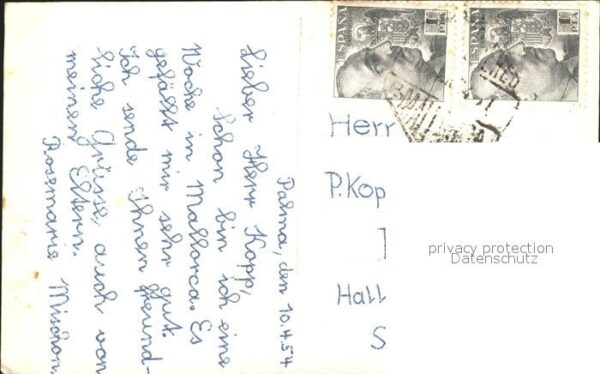 Palma, den 10.4.54
Lieber Herr Kopp,
Schon bin ich eine
Woche in Mallorca. Es
gefällt mir sehr gut.
Ich sende Ihnen freund-
liche Grüsse, auch von
meinen Eltern.
Rosemarie Mischon.
ESPAÑA
1 PTA
ESPAÑA
1 PTA
Herr
P. Kop
Hall
S
privacy protection
Datenschutz